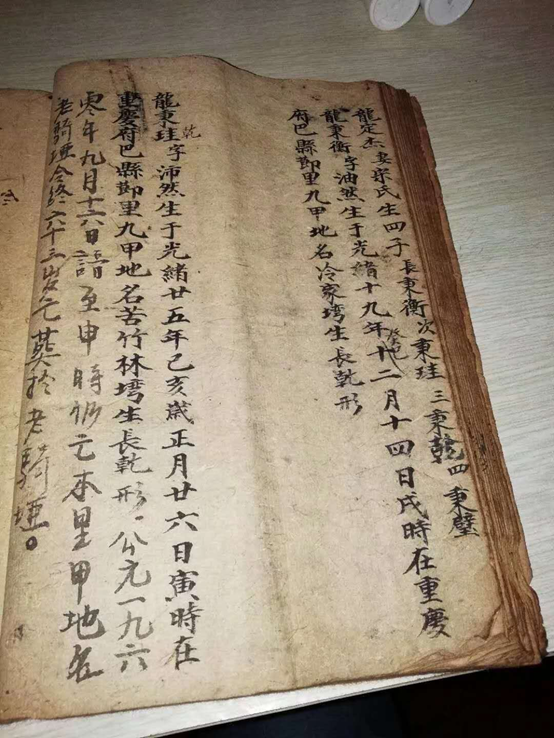 龍定杰妻宗氏生四子長秉衡次秉珪三秉乾四秉璧
龍秉衡字油然生于光緒十九年癸巳十二月十四日戌時在重慶
府巴縣節里九甲地名冷家塆生長乾形
龍秉珪乾字沛然生于光緒廿五年己亥歲正月廿六日寅時在
重慶府巴縣節里九甲地名苦竹林塆生長乾形。公元一九六
零年九月十六日 至申時 亡本里甲地名
老騎埡今終六十三歲亡葬於老騎埡。